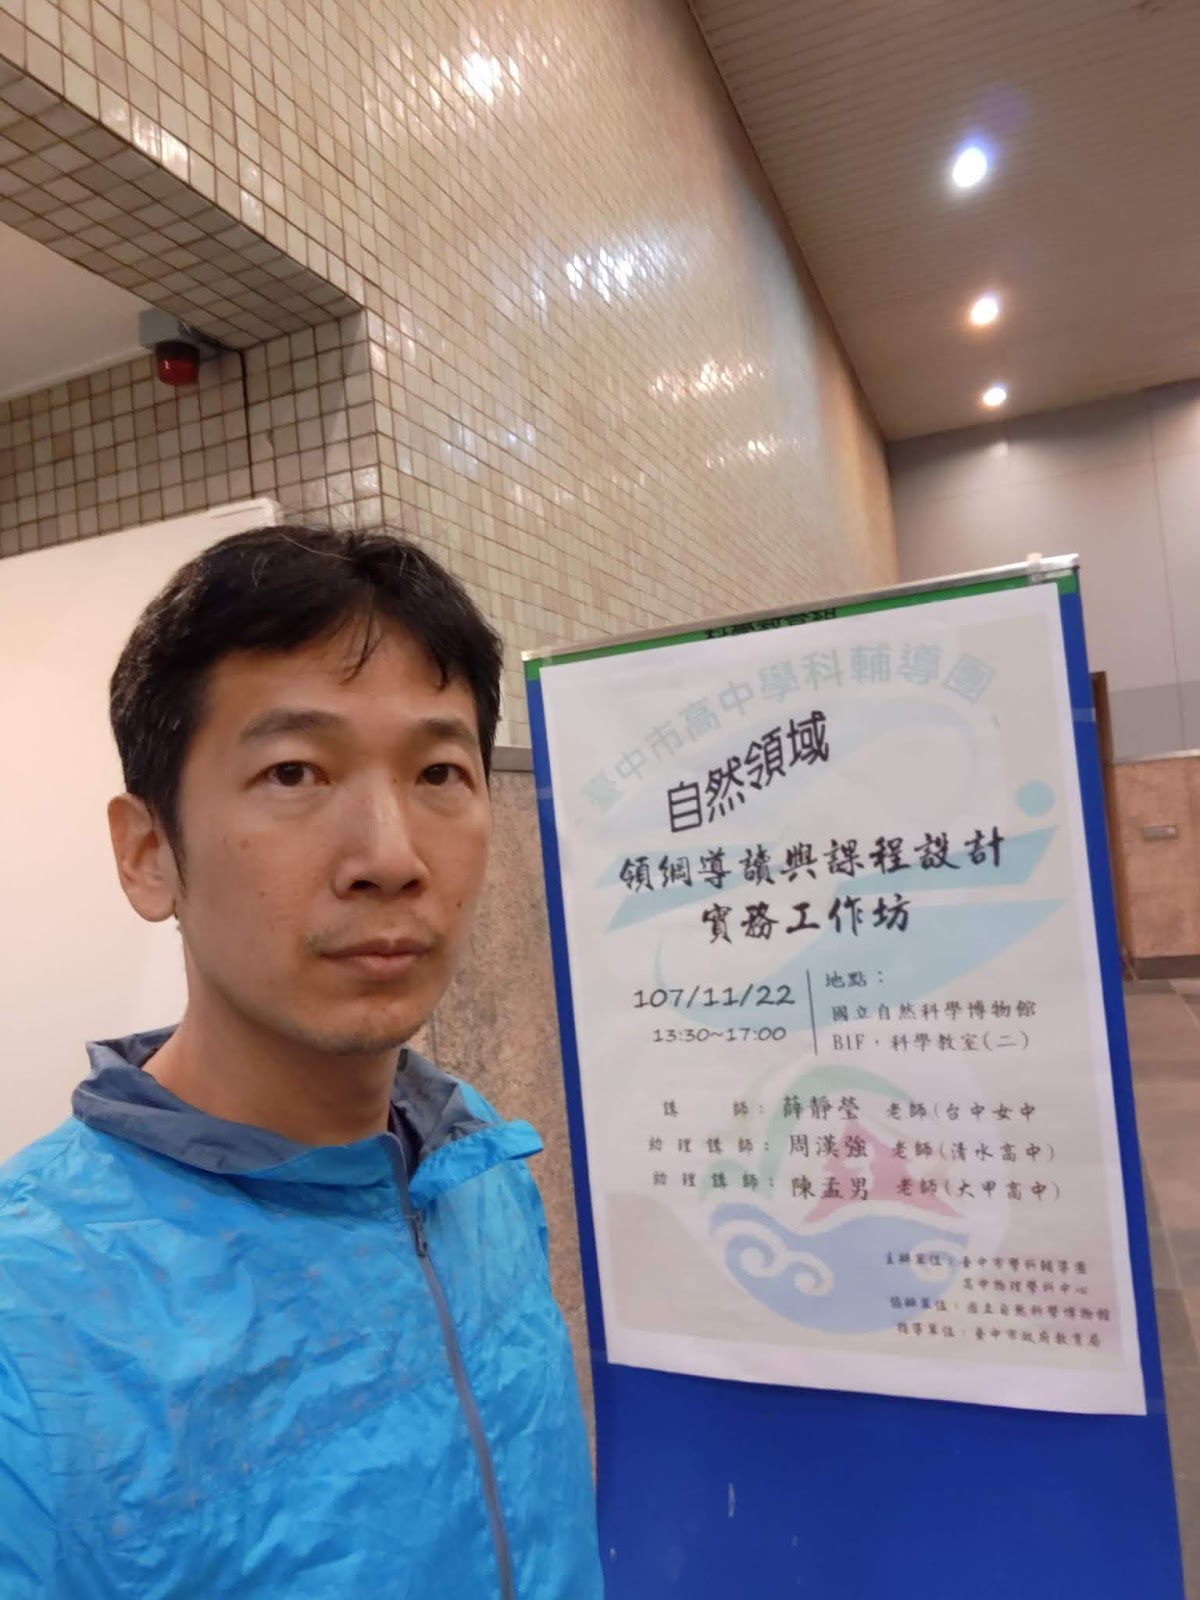 臺中市高中學科輔導團
自然領域
領綱導讀與課程設計
實務工作坊
107/11/22
13:30~17:00
地點：
國立自然科學博物館
B1F，科學教室(二)
講 師：薛靜瑩 老師(台中女中
助理講師：周漢強 老師(清水高中)
助理講師：陳孟男 老師(大甲高中)
主辦單位：臺中市學科輔導團
高中物理學科中心
協辦單位：國立自然科學博物館
指導單位：臺中市政府教育局